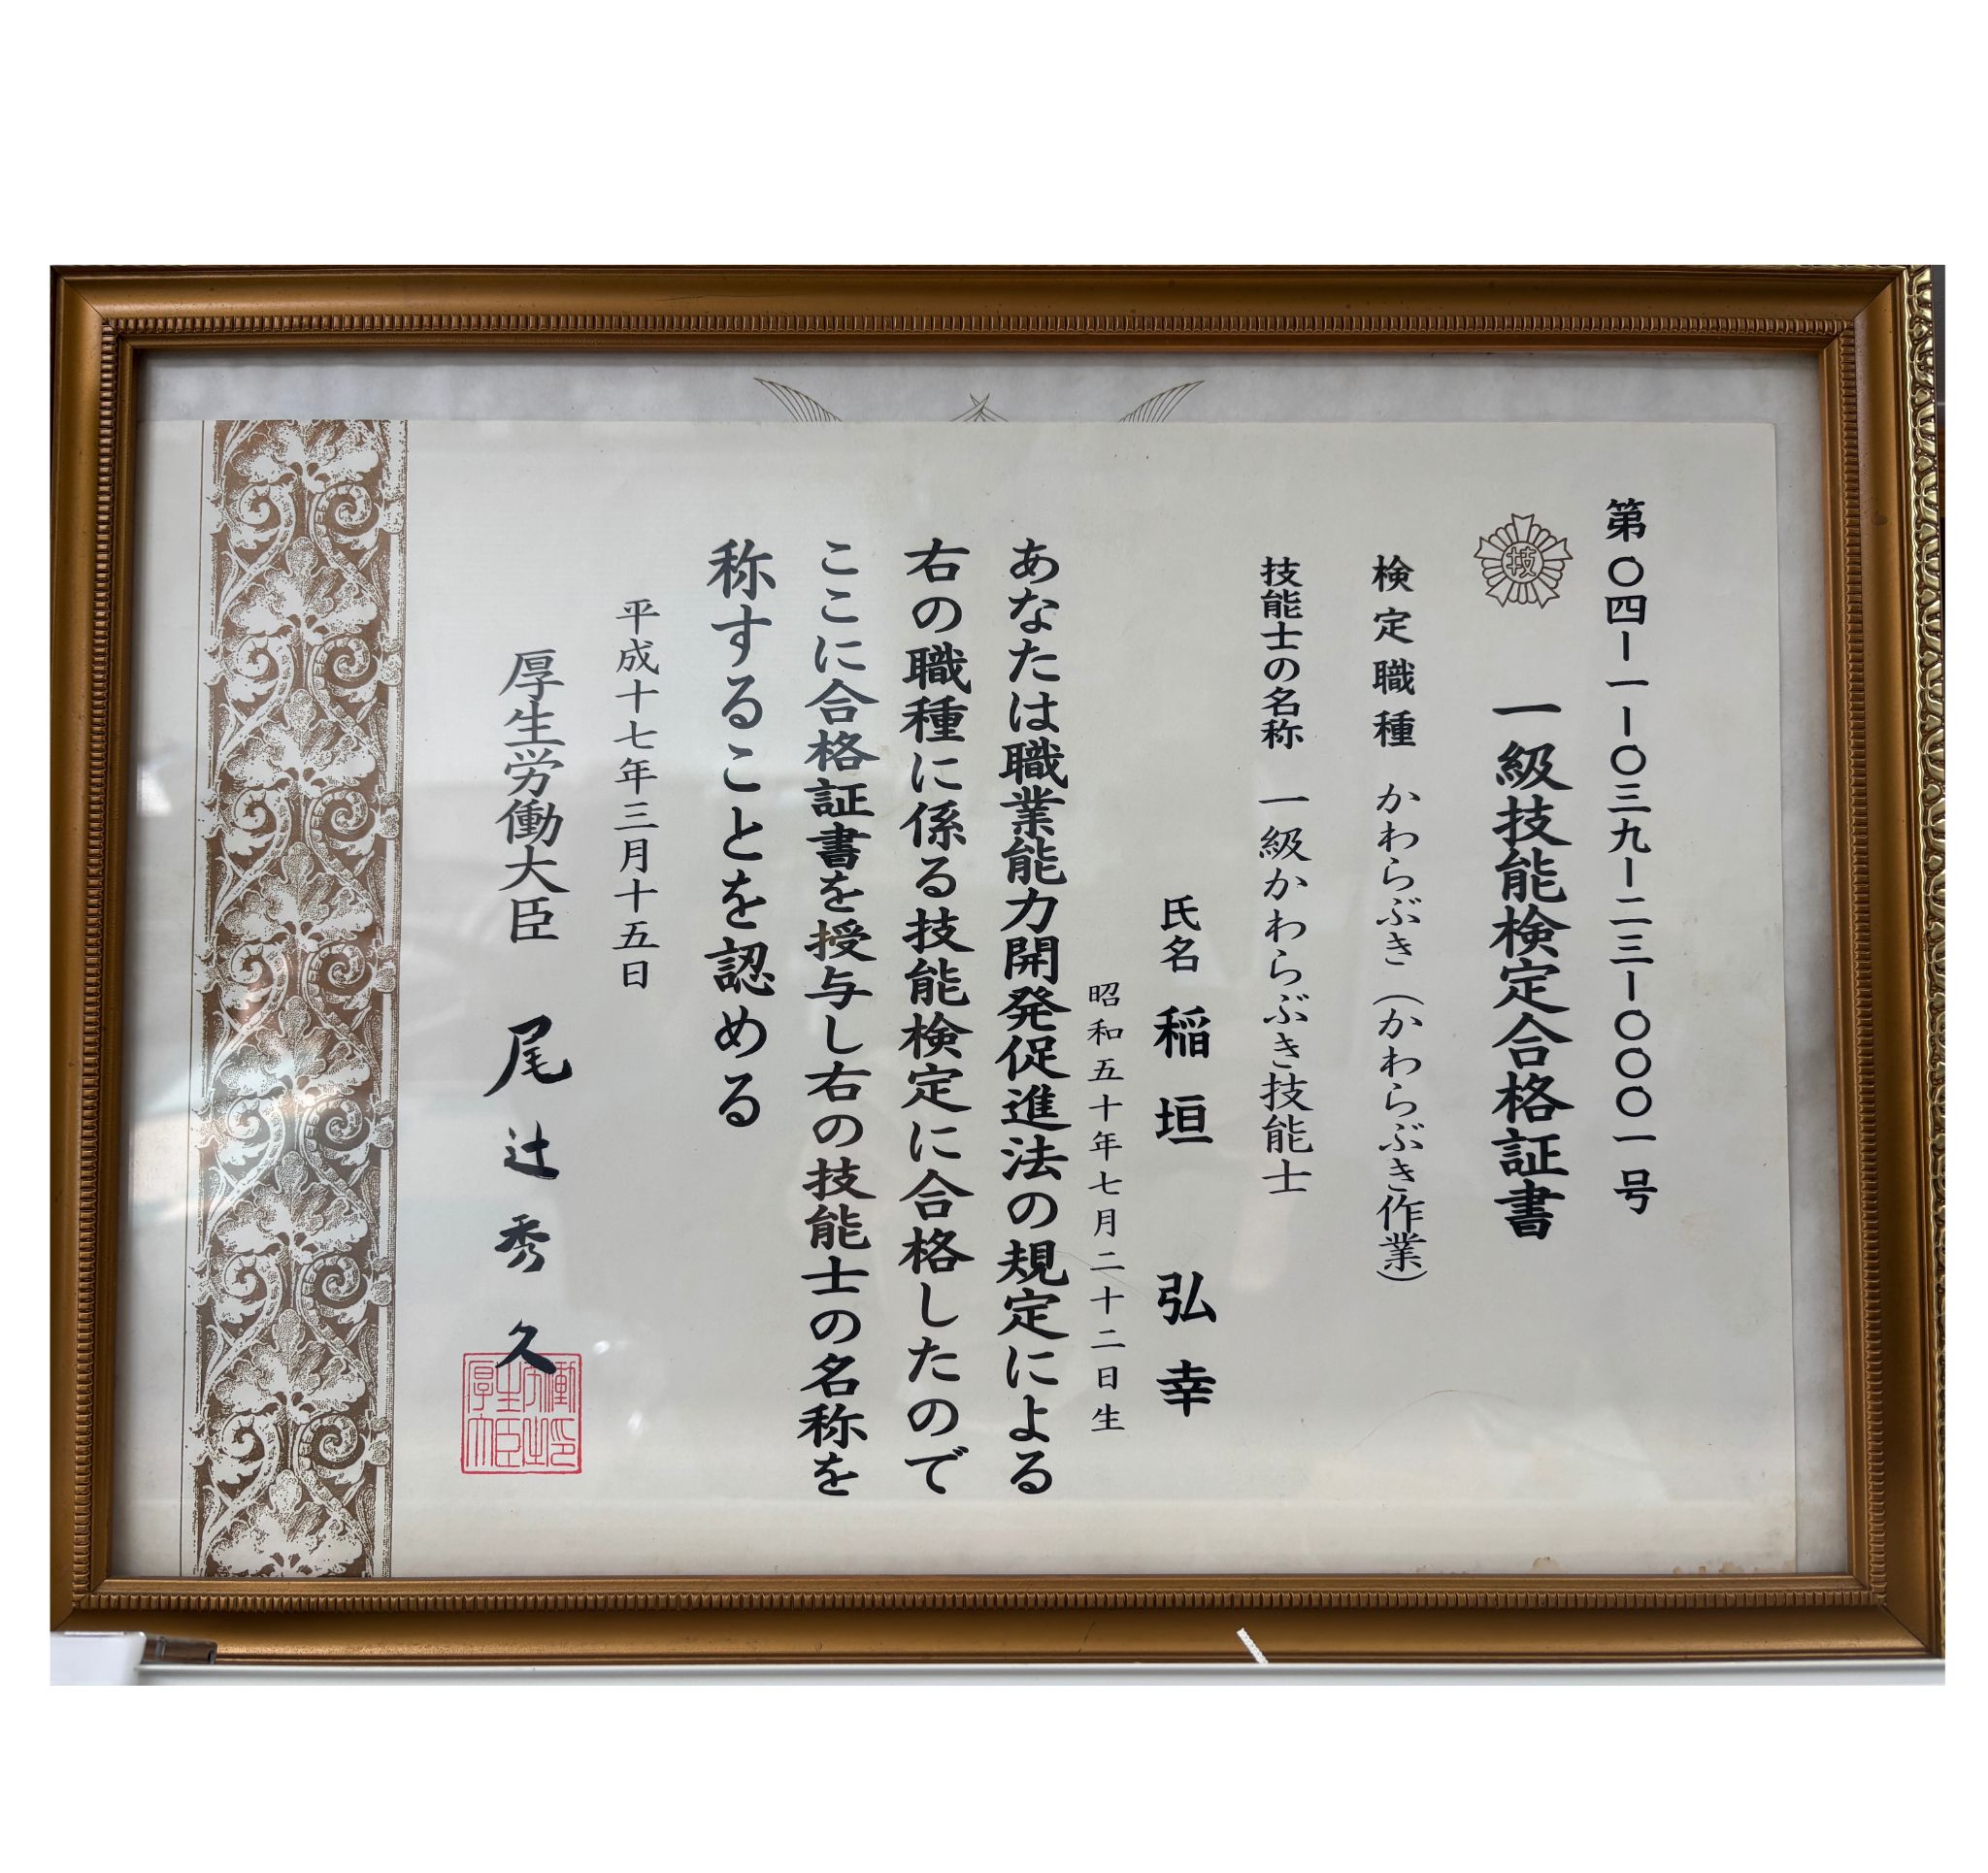 第〇四-一-〇三九-二三-〇〇〇一号
技
一級技能検定合格証書
検定職種 かわらぶき(かわらぶき作業)
技能士の名称 一級かわらぶき技能士
氏名 稲垣 弘幸
昭和五十年七月二十二日生
あなたは職業能力開発促進法の規定による
右の職種に係る技能検定に合格したので
ここに合格証書を授与し右の技能士の名称を
称することを認める
平成十七年三月十五日
厚生労働大臣 尾辻秀久